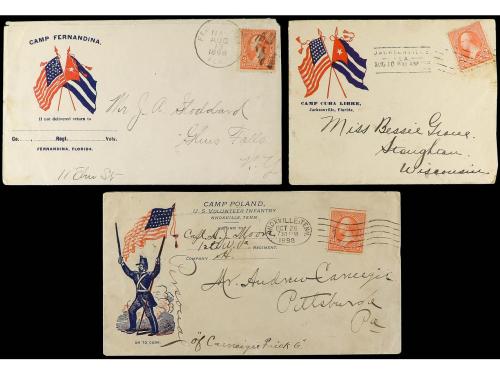 CAMP FERNANDINA.
AUG
1898
If not delivered return to
Co. Regt. Vols.
FERNANDINA, FLORIDA.
Mr J. A. Goddard
Glens Falls
N.Y.
11 Elm St
JACKSONVILLE
FLA.
CAMP CUBA LIBRE,
Jacksonville, Florida.
Miss Bessie
Stoughton
Wisconsin
CAMP POLAND,
U.S. VOLUNTEER INFANTRY
KNOXVILLE, TENN.
Capt A. J. Moore
REGIMENT.
COMPANY
KNOXVILLE, TENN.
OCT 26
1898
Personal
Mr. Andrew Carnegie
Pittsburg
Pa
"of Carnegie Frick &"
ON TO CUBA.